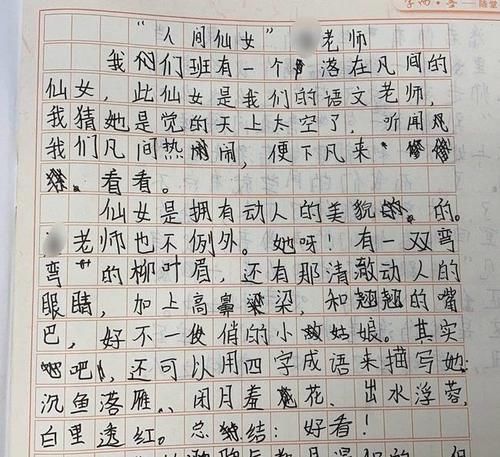 “人间仙女” 老师
我们班有一个落在凡间的
仙女,此仙女是我们的语文老师,
我猜她是觉的天上太空了,听闻凡
我们凡间热闹,便下凡来
看看。
仙女是拥有动人的美貌的。
老师也不例外。她呀!有一双弯
弯的柳叶眉,还有那清澈动人的
眼睛,加上高鼻梁,和翘翘的嘴
巴,好不一俏的小姑娘。其实
吧,还可以用四字成语来描写她:
沉鱼落雁、闭月羞花、出水浮蓉,
白里透红。总结:好看!